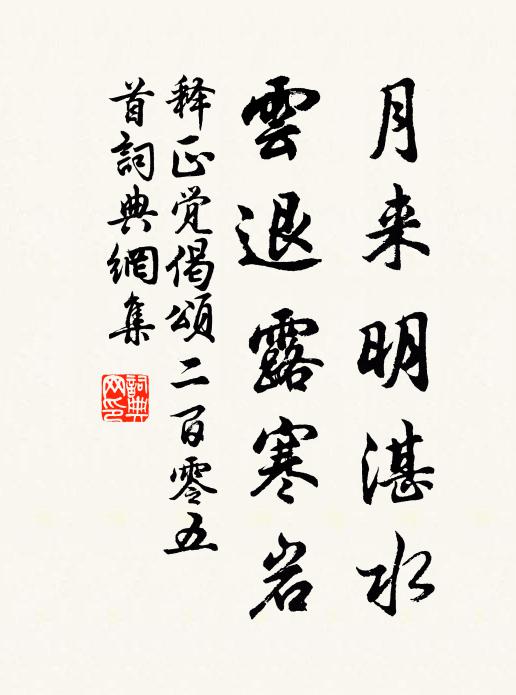 月来明湛水
雲退露寒岩
释正觉偈頌二百零五
首詞典網集
詞典
网印